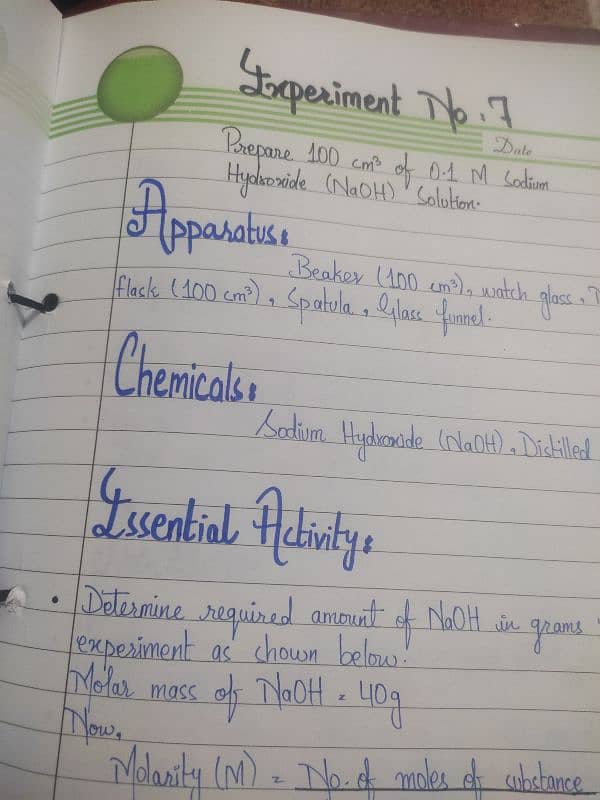 Experiment No. 7
Date
Prepare 100 cm³ of 0.1 M Sodium
Hydroxide (NaOH) Solution.
Apparatus:
Beaker (100 cm³), watch glass,
flask (100 cm³), Spatula, Glass funnel.
Chemicals:
Sodium Hydroxide (NaOH), Distilled
Essential Activity:
• Determine required amount of NaOH in grams
experiment as shown below.
Molar mass of NaOH = 40g
Now,
Molarity (M) = No. of moles of substance